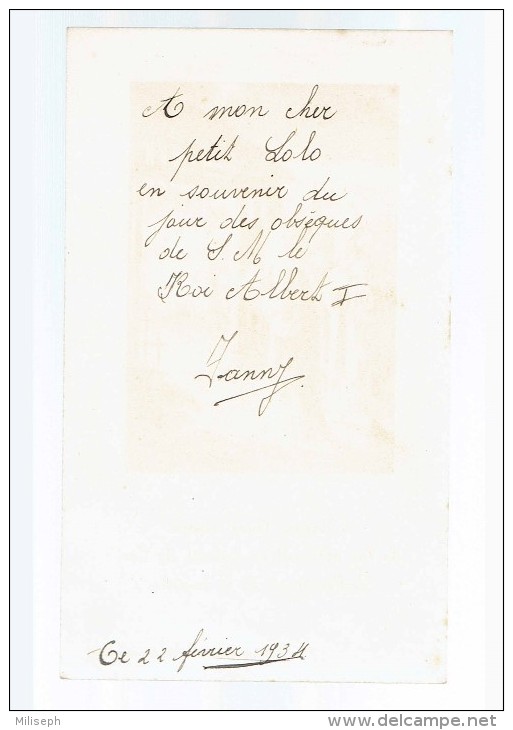 A mon cher
petit Lolo
en souvenir du
jour des obsèques
de S.M le
Roi Albert I
Fanny.
Ce 22 février 1934
Miliseph
www.delcampe.net